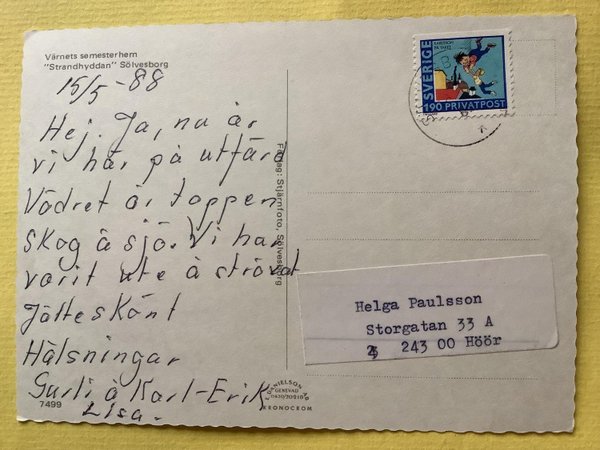 Värnets semesterhem
"Strandhyddan" Sölvesborg
15/5-88
Hej. Ja, nu är
vi här på utfärd
Vädret är toppen
skog å sjö. Vi har
varit ute å strövat
Jätteskönt
Hälsningar
Gurli å Karl-Erik
Lisa.
7499
Förlag: Stjärnfoto, Sölvesborg
SVERIGE
190 PRIVATPOST
Helga Paulsson
Storgatan 33 A
243 00 Höör
DANIELSON
GENEVAD
KRONOCROM